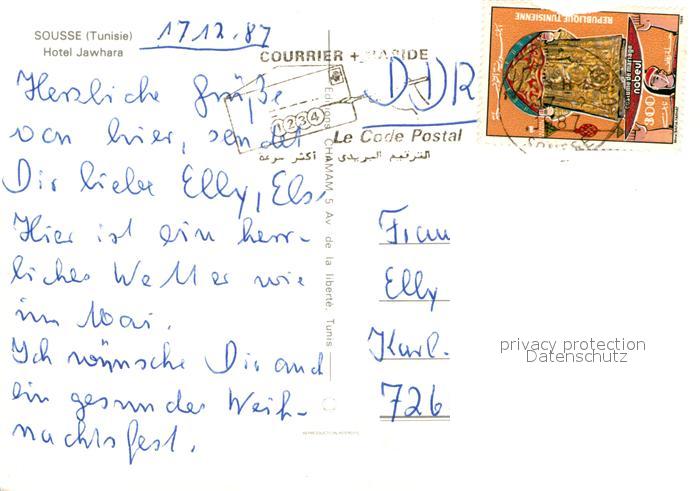 SOUSSE (Tunisie)
Hotel Jawhara
17.12.87
COURRIER + RAPIDE
1234
Le Code Postal
الترقيم البريدي أكثر سرعة
DDR
REPUBLIQUE TUNISIENNE
costume de mariage
nabeul
300
Herzliche Grüße
von hier, sendet
Dir liebe Elly, Els.
Hier ist ein herr-
liches Wetter wie
im Mai.
Ich wünsche Dir auch
ein gesundes Weih-
nachtsfest.
Editions CHAMAM 5 Av de la liberté. Tunis
Frau
Elly
Karl.
726
privacy protection
Datenschutz